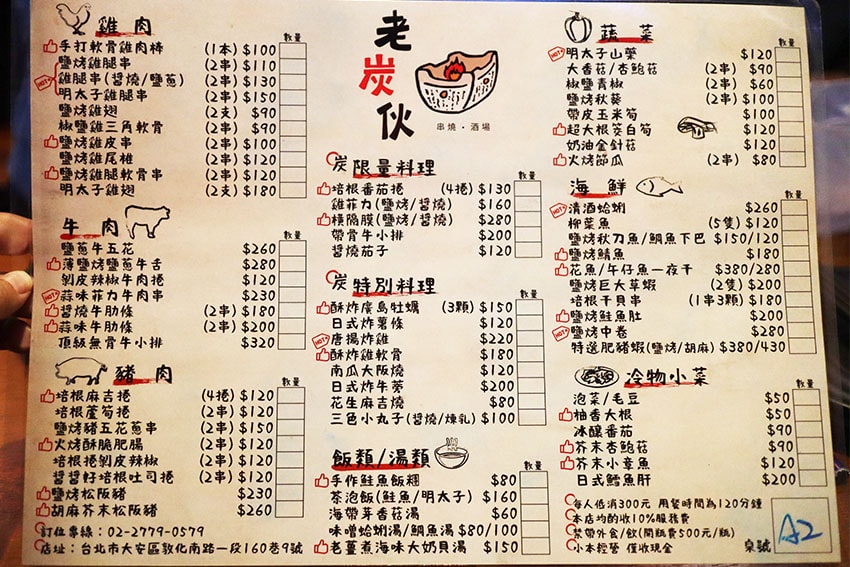 雞肉
數量
手打軟骨雞肉棒 (1本) $100
鹽烤雞腿串 (2串) $110
HOT 雞腿串(醬燒/鹽蔥) (2串) $130
明太子雞腿串 (2串) $150
鹽烤雞翅 (2支) $90
椒鹽雞三角軟骨 (2串) $90
鹽烤雞皮串 (2串) $100
鹽烤雞尾椎 (2串) $120
鹽烤雞腿軟骨串 (2串) $120
明太子雞翅 (2支) $180
牛肉
數量
鹽蔥牛五花 $260
薄鹽烤鹽蔥牛舌 $280
剝皮辣椒牛肉捲 $120
HOT 蒜味菲力牛肉串 $230
醬燒牛肋條 (2串) $180
蒜味牛肋條 (2串) $200
頂級無骨牛小排 $320
豬肉
數量
培根麻吉捲 (4捲) $120
培根蘆筍捲 (2串) $120
鹽烤豬五花蔥串 (2串) $120
火烤酥脆肥腸 (2串) $120
培根捲剝皮辣椒 (2串) $120
醬醬好培根吐司捲 (2串) $120
鹽烤松阪豬 $230
胡麻芥末松阪豬 $260
訂位專線：02-2779-0579
店址：台北市大安區敦化南路一段160巷9號
老炭伙
串燒・酒場
炭 限量料理
數量
培根番茄捲 (4捲) $130
雞菲力(鹽烤/醬燒) $160
橫隔膜(鹽烤/醬燒) $280
帶骨牛小排 $200
醬燒茄子 $120
炭 特別料理
數量
酥炸廣島牡蠣 (3顆) $150
日式炸薯條 $120
HOT 唐揚炸雞 $220
酥炸雞軟骨 $180
南瓜大阪燒 $120
日式炸牛蒡 $200
花生麻吉燒 $80
三色小丸子(醬燒/煉乳) $100
飯類/湯類
數量
手作鮭魚飯糰 $80
茶泡飯(鮭魚/明太子) $160
海帶芽香菇湯 $60
味噌蛤蜊湯/鯛魚湯 $80/100
老薑煮海味大奶貝湯 $150
蔬菜
數量
HOT 明太子山藥 $120
大香菇/杏鮑菇 (2串) $90
椒鹽青椒 (2串) $60
鹽烤秋葵 (2串) $100
帶皮玉米筍 $100
超大根茭白筍 $120
奶油金針菇 $120
火烤節瓜 (2串) $80
海鮮
數量
HOT 清酒蛤蜊 $260
柳葉魚 (5隻) $120
鹽烤秋刀魚/鯛魚下巴 $150/120
鹽烤鯖魚 $180
花魚/午仔魚一夜干 $380/280
鹽烤巨大草蝦 (2隻) $200
培根干貝串 (1串3顆) $180
鹽烤鮭魚肚 $200
HOT 鹽烤中卷 $280
特選肥豬蝦(鹽烤/胡麻) $380/430
冷物小菜
數量
泡菜/毛豆 $50
柚香大根 $50
冰釀番茄 $90
芥末杏鮑菇 $90
芥末小章魚 $120
日式鱈魚肝 $200
每人低消300元 用餐時間為120分鐘
本店均酌收10%服務費
禁帶外食/飲(開瓶費500元/瓶)
小本經營 僅收現金
桌號 A2